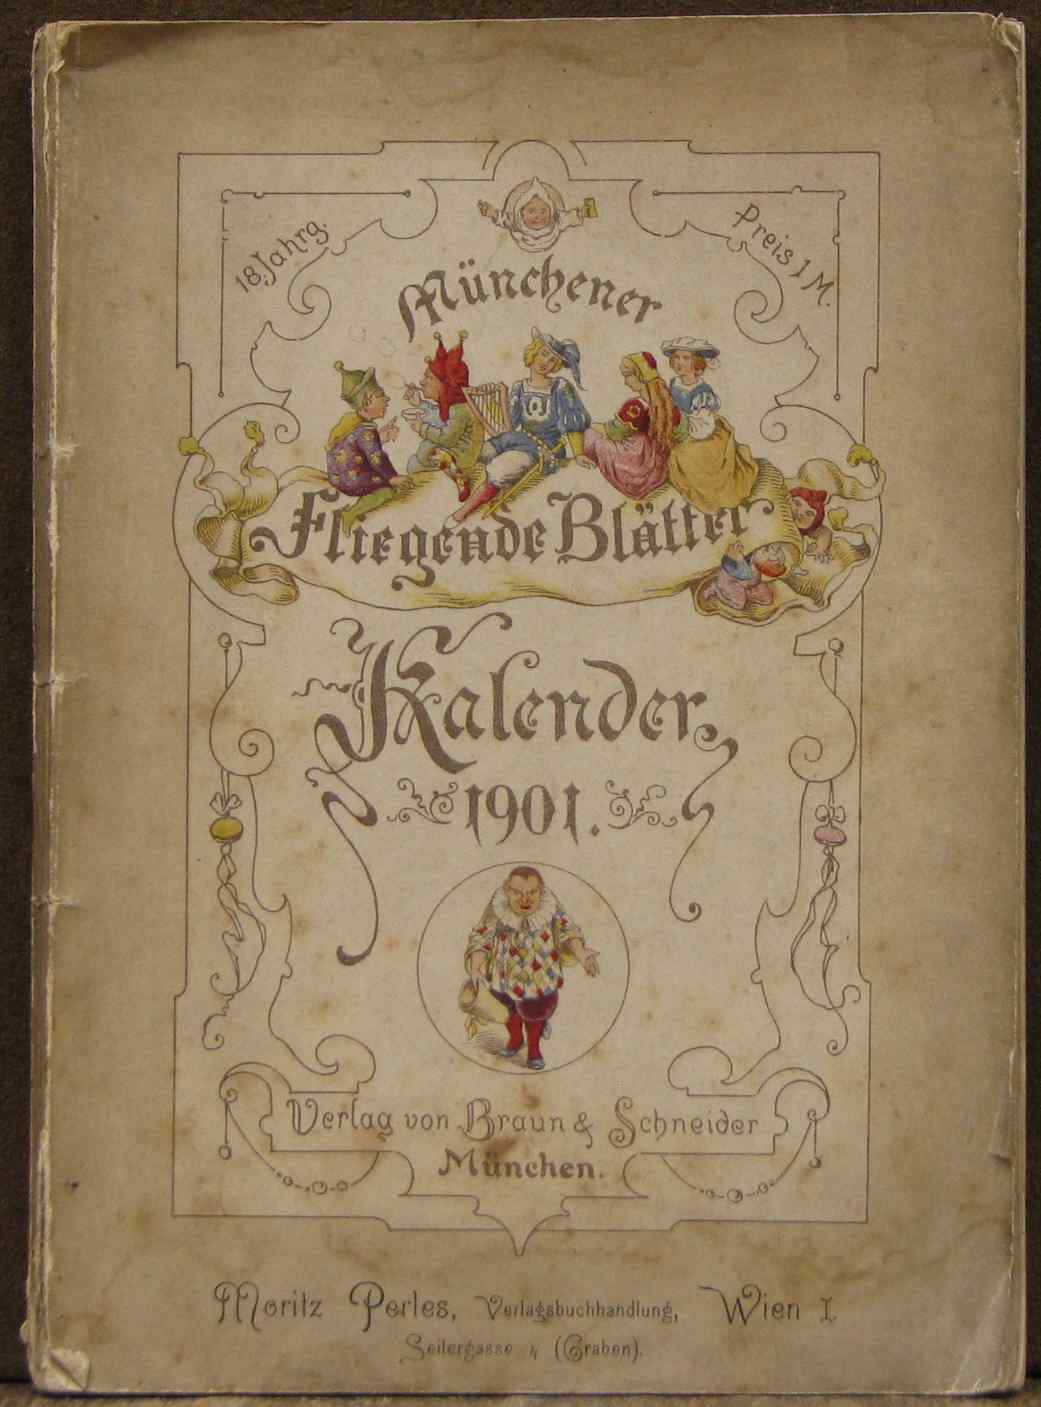 18. Jahrg.
Preis 1 M.
Münchener
Fliegende Blätter
Kalender
1901.
Verlag von Braun & Schneider
München.
Moritz Perles, Verlagsbuchhandlung, Wien I.
Seilergasse 4 (Graben).